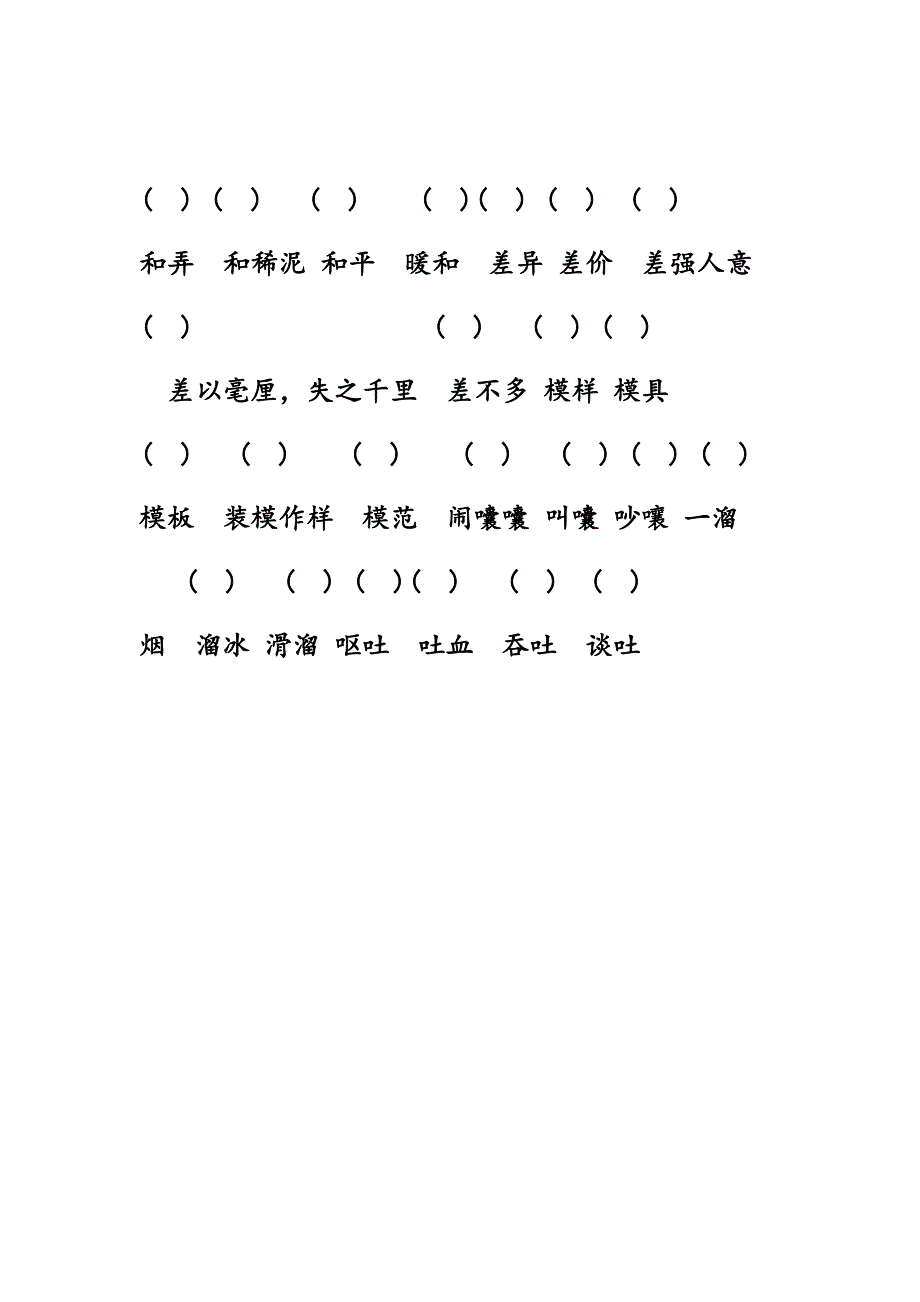 （ ）（ ） （ ） （ ）（ ）（ ） （ ）
和弄 和稀泥 和平 暖和 差异 差价 差强人意
（ ） （ ） （ ）（ ）
差以毫厘，失之千里 差不多 模样 模具
（ ） （ ） （ ） （ ） （ ）（ ）（ ）
模板 装模作样 模范 闹囔囔 叫囔 吵嚷 一溜
（ ） （ ）（ ）（ ） （ ） （ ）
烟 溜冰 滑溜 呕吐 吐血 吞吐 谈吐